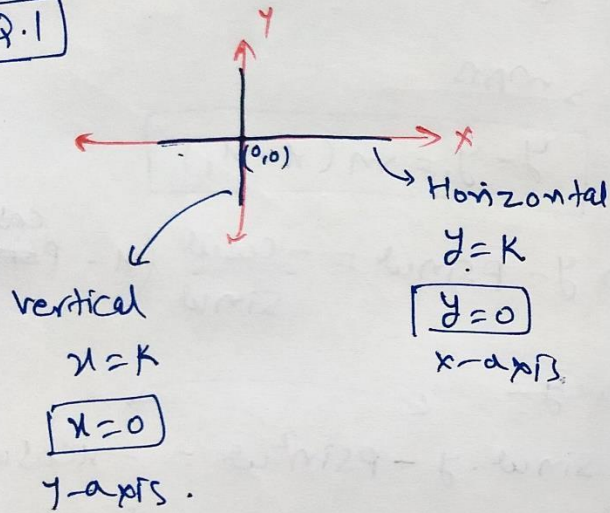 Q.1
Y
X
(0,0)
Horizontal
y = K
y = 0
x-axis.
vertical
x = K
x = 0
y-axis.